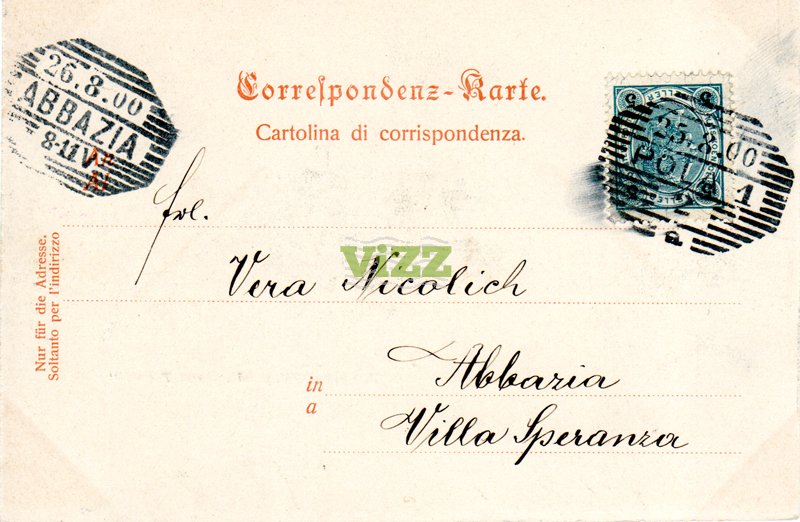 Correspondenz-Karte.
Cartolina di corrispondenza.
26.8.00
ABBAZIA
8-11V
An
Al
HELLER
25.8.00
POLA
1
Frl.
ViZZ
Vera Nicolich
Nur für die Adresse.
Soltanto per l'indirizzo
in
a
Abbazia
Villa Speranza